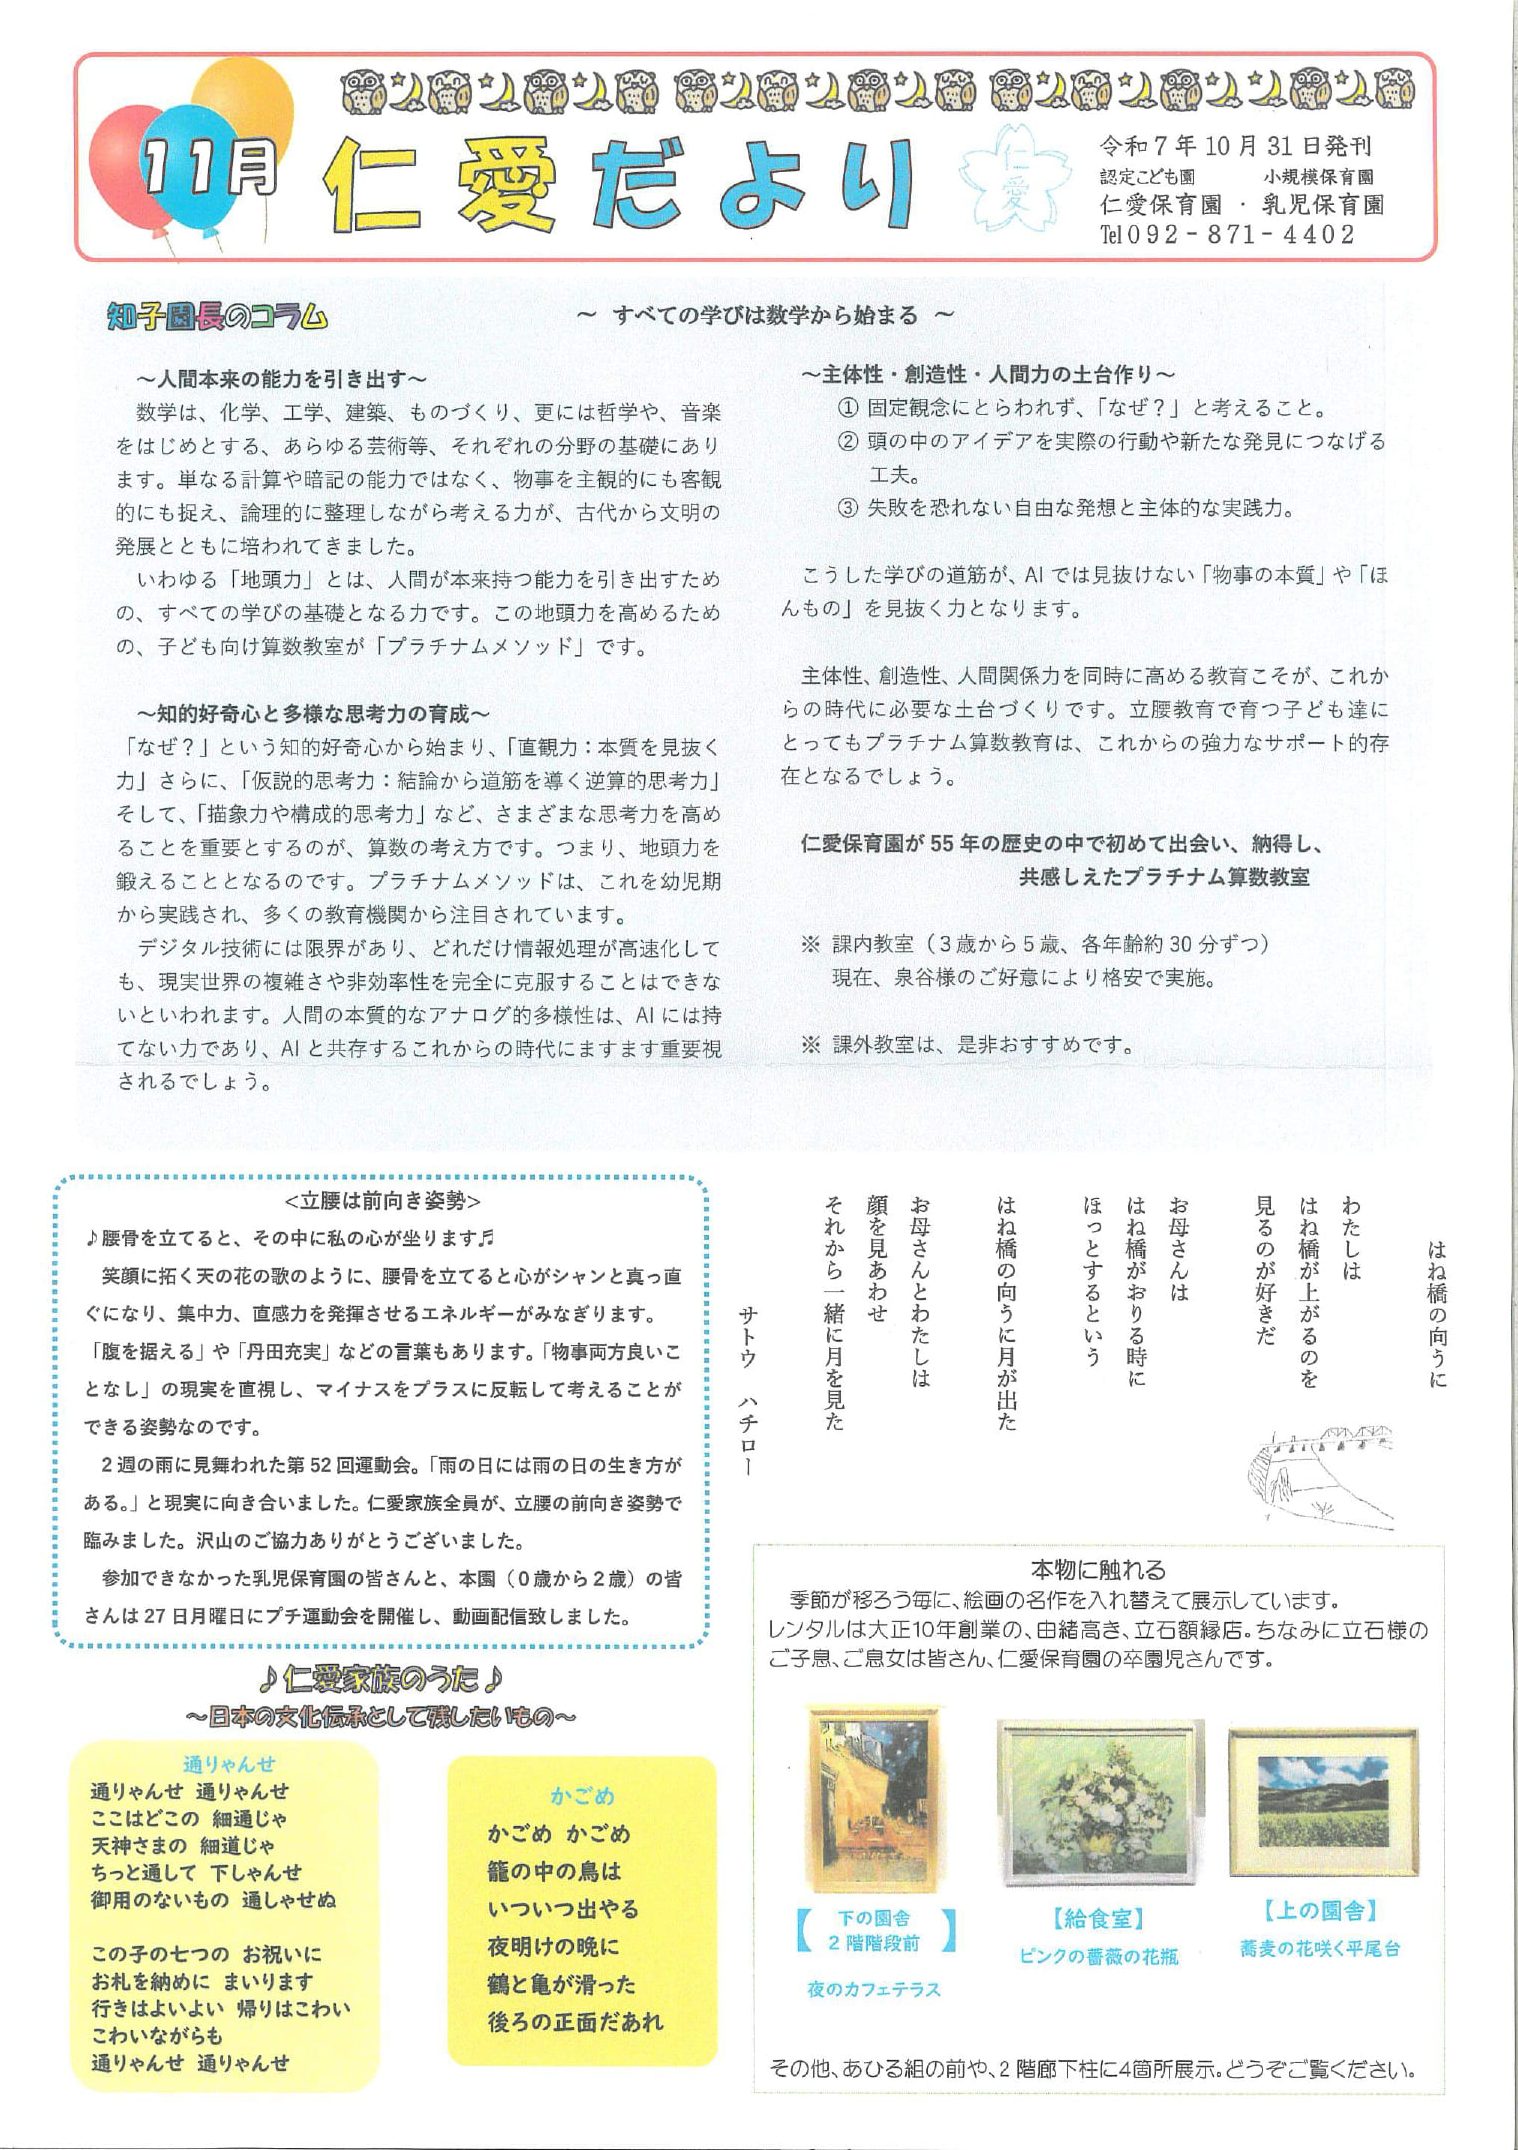 11月
仁愛だより
仁愛
令和7年10月31日発刊
認定こども園　小規模保育園
仁愛保育園 ・ 乳児保育園
Tel 092-871-4402
知子園長のコラム
～ すべての学びは数学から始まる ～
～人間本来の能力を引き出す～
数学は、化学、工学、建築、ものづくり、更には哲学や、音楽
をはじめとする、あらゆる芸術等、それぞれの分野の基礎にあり
ます。単なる計算や暗記の能力ではなく、物事を主観的にも客観
的にも捉え、論理的に整理しながら考える力が、古代から文明の
発展とともに培われてきました。
いわゆる「地頭力」とは、人間が本来持つ能力を引き出すため
の、すべての学びの基礎となる力です。この地頭力を高めるため
の、子ども向け算数教室が「プラチナムメソッド」です。
～知的好奇心と多様な思考力の育成～
「なぜ？」という知的好奇心から始まり、「直観力：本質を見抜く
力」さらに、「仮説的思考力：結論から道筋を導く逆算的思考力」
そして、「描象力や構成的思考力」など、さまざまな思考力を高め
ることを重要とするのが、算数の考え方です。つまり、地頭力を
鍛えることとなるのです。プラチナムメソッドは、これを幼児期
から実践され、多くの教育機関から注目されています。
デジタル技術には限界があり、どれだけ情報処理が高速化して
も、現実世界の複雑さや非効率性を完全に克服することはできな
いといわれます。人間の本質的なアナログ的多様性は、AIには持
てない力であり、AIと共存するこれからの時代にますます重要視
されるでしょう。
～主体性・創造性・人間力の土台作り～
① 固定観念にとらわれず、「なぜ？」と考えること。
② 頭の中のアイデアを実際の行動や新たな発見につなげる
工夫。
③ 失敗を恐れない自由な発想と主体的な実践力。
こうした学びの道筋が、AIでは見抜けない「物事の本質」や「ほ
んもの」を見抜く力となります。
主体性、創造性、人間関係力を同時に高める教育こそが、これか
らの時代に必要な土台づくりです。立腰教育で育つ子ども達に
とってもプラチナム算数教育は、これからの強力なサポート的存
在となるでしょう。
仁愛保育園が55年の歴史の中で初めて出会い、納得し、
共感しえたプラチナム算数教室
※ 課内教室（３歳から５歳、各年齢約30分ずつ）
現在、泉谷様のご好意により格安で実施。
※ 課外教室は、是非おすすめです。
<立腰は前向き姿勢>
♪腰骨を立てると、その中に私の心が坐ります♬
笑顔に拓く天の花の歌のように、腰骨を立てると心がシャンと真っ直
ぐになり、集中力、直感力を発揮させるエネルギーがみなぎります。
「腹を据える」や「丹田充実」などの言葉もあります。「物事両方良いこ
となし」の現実を直視し、マイナスをプラスに反転して考えることが
できる姿勢なのです。
2週の雨に見舞われた第52回運動会。「雨の日には雨の日の生き方が
ある。」と現実に向き合いました。仁愛家族全員が、立腰の前向き姿勢で
臨みました。沢山のご協力ありがとうございました。
参加できなかった乳児保育園の皆さんと、本園（０歳から２歳）の皆
さんは27日月曜日にプチ運動会を開催し、動画配信致しました。
はね橋の向うに
わたしは
はね橋が上がるのを
見るのが好きだ
お母さんは
はね橋がおりる時に
ほっとするという
はね橋の向うに月が出た
お母さんとわたしは
顔を見あわせ
それから一緒に月を見た
サトウ ハチロー
♪仁愛家族のうた♪
～日本の文化伝承として残したいもの～
通りゃんせ
通りゃんせ 通りゃんせ
ここはどこの 細通じゃ
天神さまの 細道じゃ
ちっと通して 下しゃんせ
御用のないもの 通しゃせぬ
この子の七つの お祝いに
お札を納めに まいります
行きはよいよい 帰りはこわい
こわいながらも
通りゃんせ 通りゃんせ
かごめ
かごめ かごめ
籠の中の鳥は
いついつ出やる
夜明けの晩に
鶴と亀が滑った
後ろの正面だあれ
本物に触れる
季節が移ろう毎に、絵画の名作を入れ替えて展示しています。
レンタルは大正10年創業の、由緒高き、立石額縁店。ちなみに立石様の
ご子息、ご息女は皆さん、仁愛保育園の卒園児さんです。
【下の園舎
２階階段前】
夜のカフェテラス
【給食室】
ピンクの薔薇の花瓶
【上の園舎】
蕎麦の花咲く平尾台
その他、あひる組の前や、２階廊下柱に4箇所展示。どうぞご覧ください。